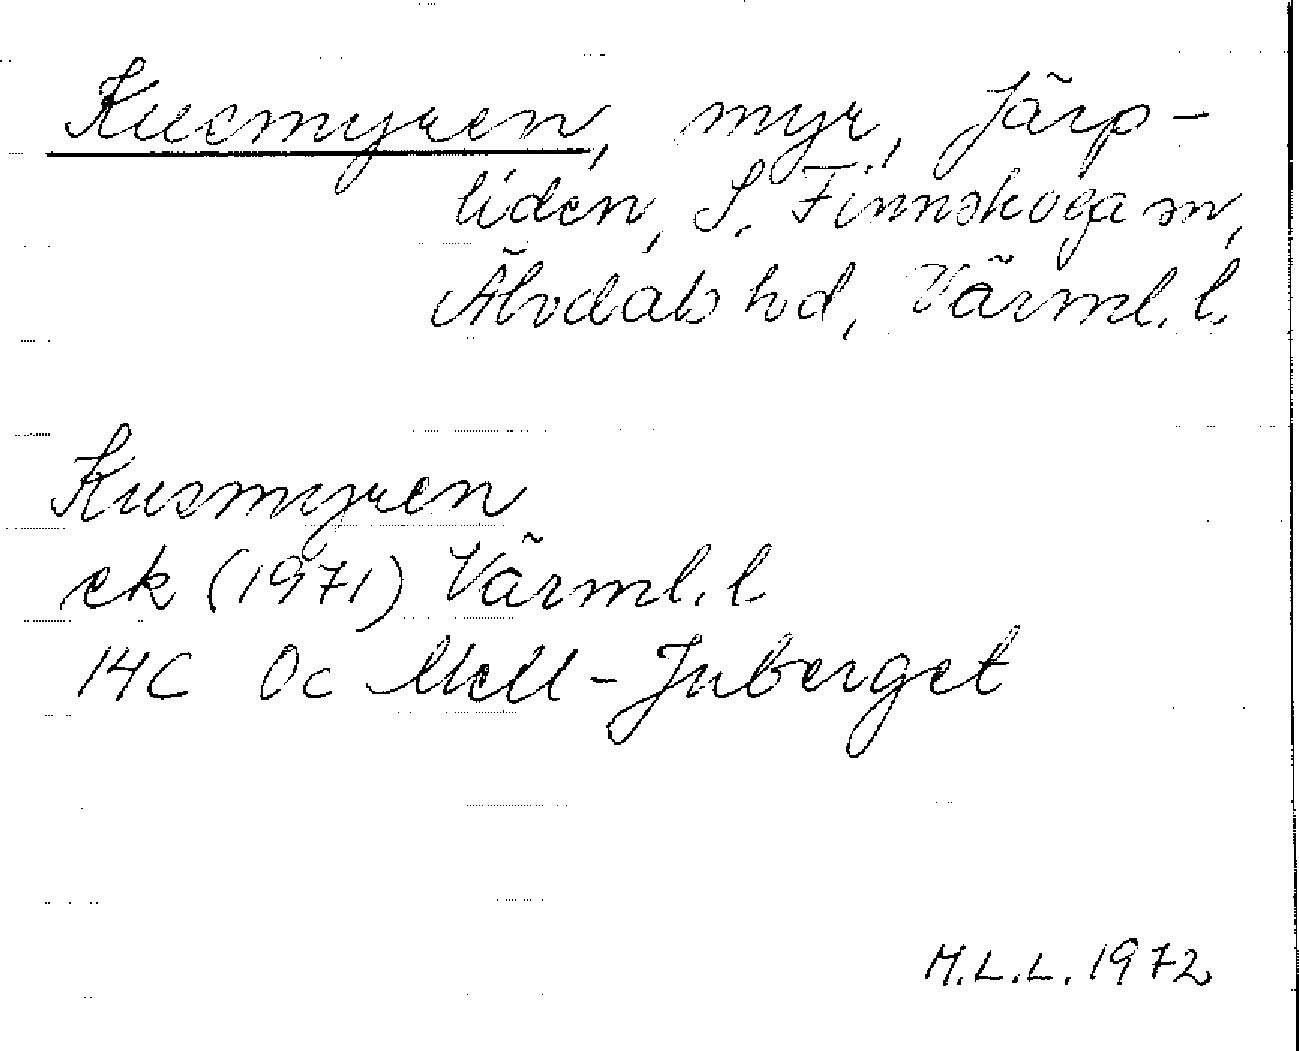 Kusmyren, myr, Järp-
liden, S. Finnskoga sn,
Älvdals hd, Värml. l.
Kusmyren
ek (1971) Värml. l.
14C Oc Mell-Juberget
M.L.L. 1972